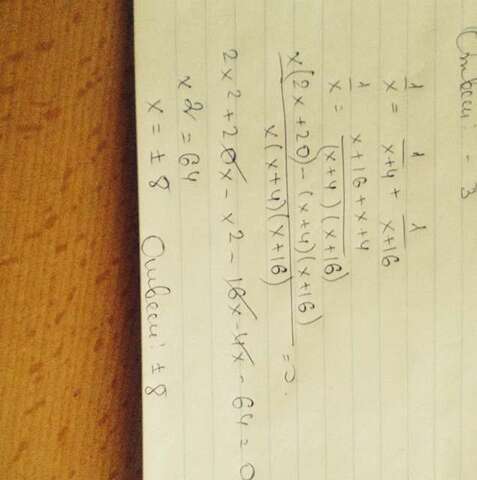 Ответ: - 3
1/x = 1/(x+4) + 1/(x+16)
1/x = (x+16+x+4)/((x+4)(x+16))
(x(2x+20)-(x+4)(x+16))/(x(x+4)(x+16)) = 0.
2x² + 20x - x² - 16x - 4x - 64 = 0
x² = 64
x = ± 8 Ответ: ± 8